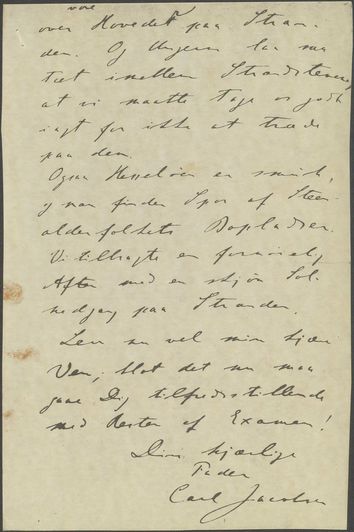 vore
over Hovedet paa Stran-
den. Og Ungerne laa saa
tæt imellem Strandstenene,
at vi maatte tage os godt
iagt for ikke at træde
paa dem.
Ogsaa Hesseløen er smuk,
og man finder Spor af Sten-
alderfolkets Bopladser.
Vi tilbragte en fornøielig
Aften med en skjøn Sol-
nedgang paa Stranden.
Lev nu vel min kjære
Ven, blot det nu maa
gaae Dig tilfredsstillende
med Resten af Examen!
Din kjærlige
Fader
Carl Jacobsen